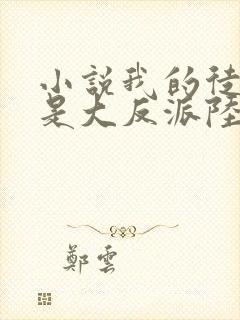 小說我的徒
是大反派陸
鄭雲